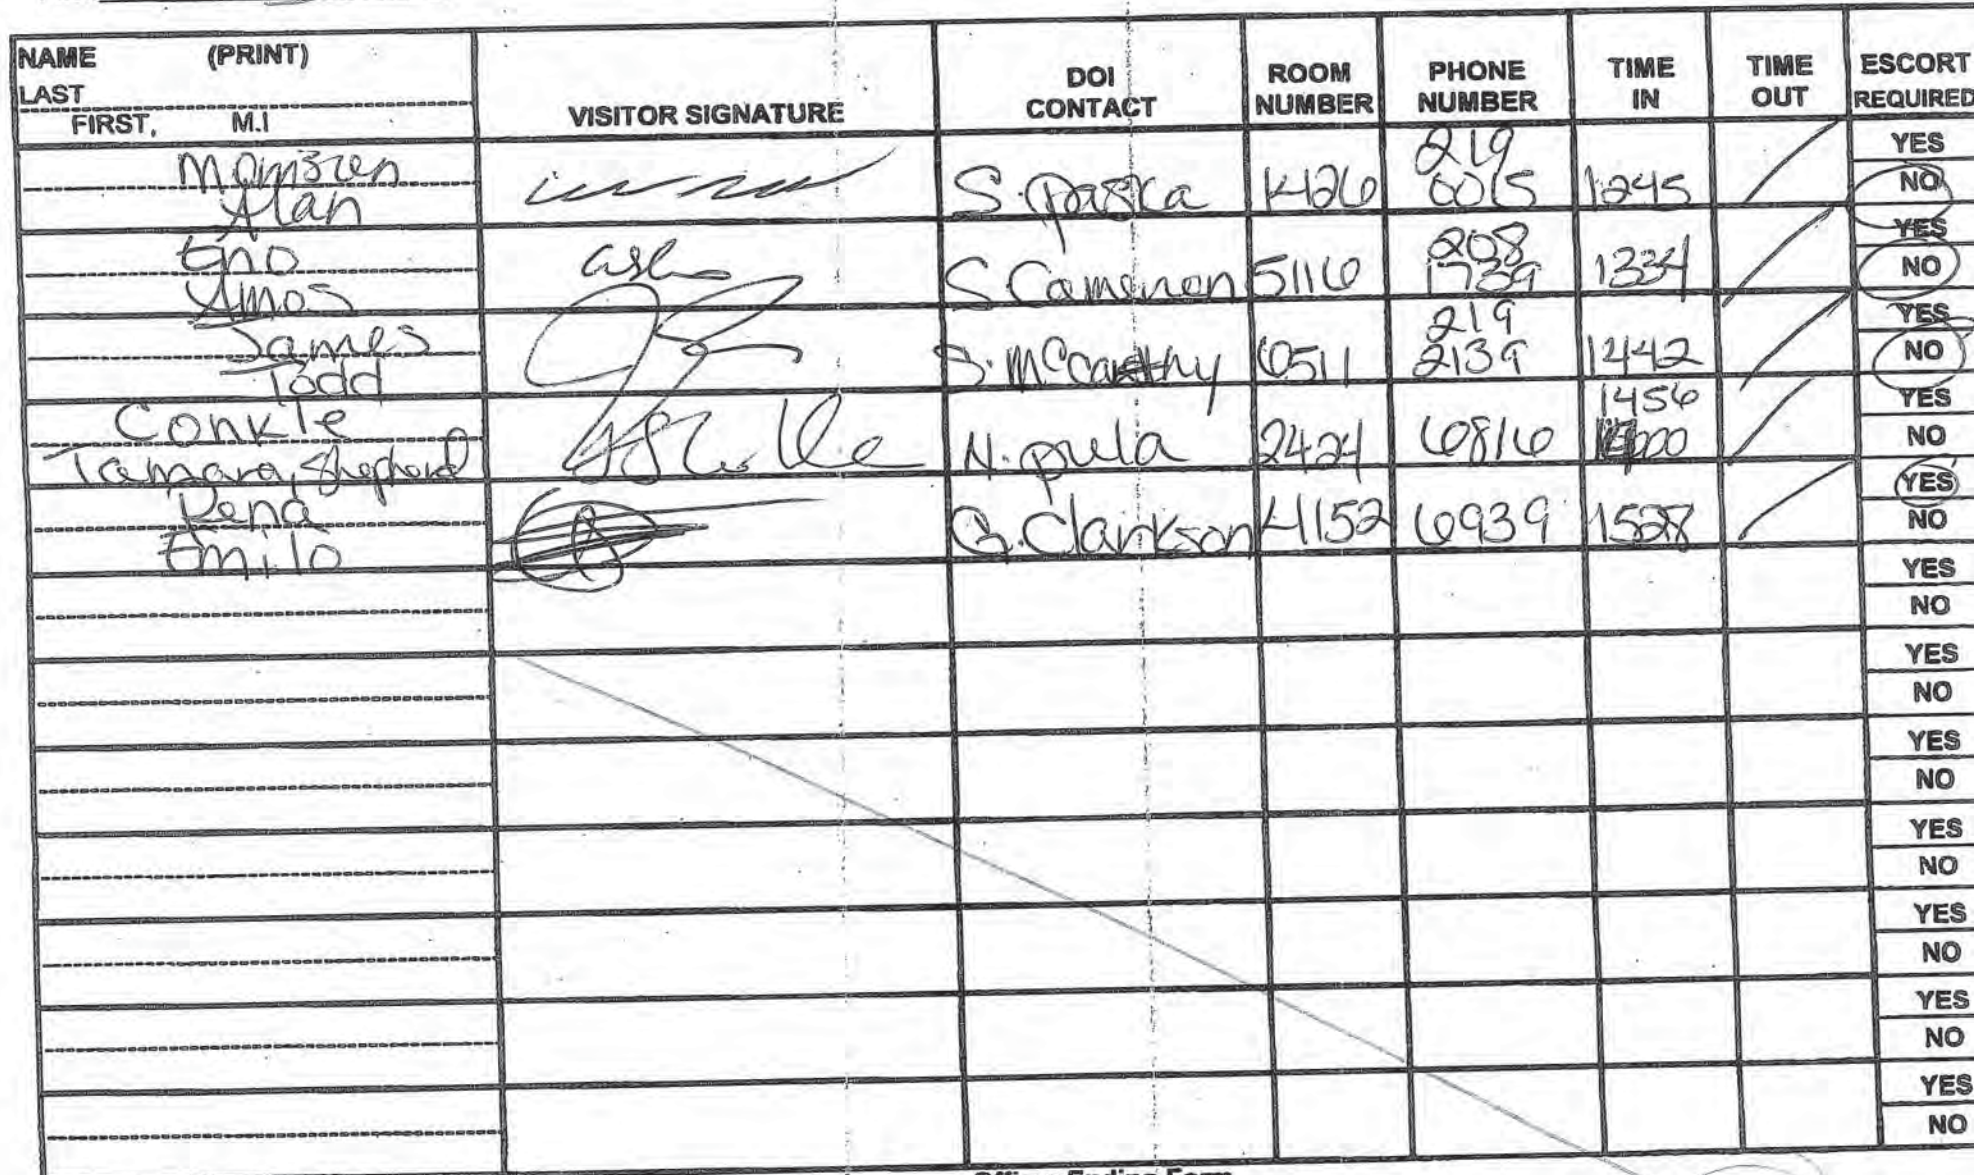 NAME (PRINT)
LAST
FIRST, M.I
VISITOR SIGNATURE
DOI CONTACT
ROOM NUMBER
PHONE NUMBER
TIME IN
TIME OUT
ESCORT REQUIRED
Alan S. Paska 219 0015 1245 YES NO
Eno
Amos S. Cameron 5116 208 1739 1334 YES NO
James
Todd S. McCarthy 6511 219 2139 1442 YES NO
Conkle
Tamara, Shepherd N. pula 2424 6816 1456 YES NO
Pena
Emilo G. Clarkson 4152 6939 1528 YES NO
YES
NO
YES
NO
YES
NO
YES
NO
YES
NO
YES
NO
YES
NO
Ending Form